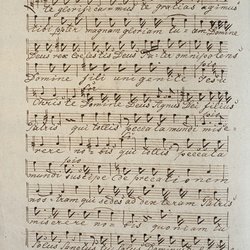 te glorificamus te gratias agimus
tibi propter magnam gloriam tuam Domine
Deus rex coelestis Deus Pater omnipotens
Domine fili unigenite Jesu
Christe Domine Deus Agnus Dei filius
Patris qui tollis peccata mundi mise-
rere nobis qui tollis peccata
mundi suscipe deprecationem
nostram qui sedes ad dexteram Patris
miserere nobis quoniam tu
solus